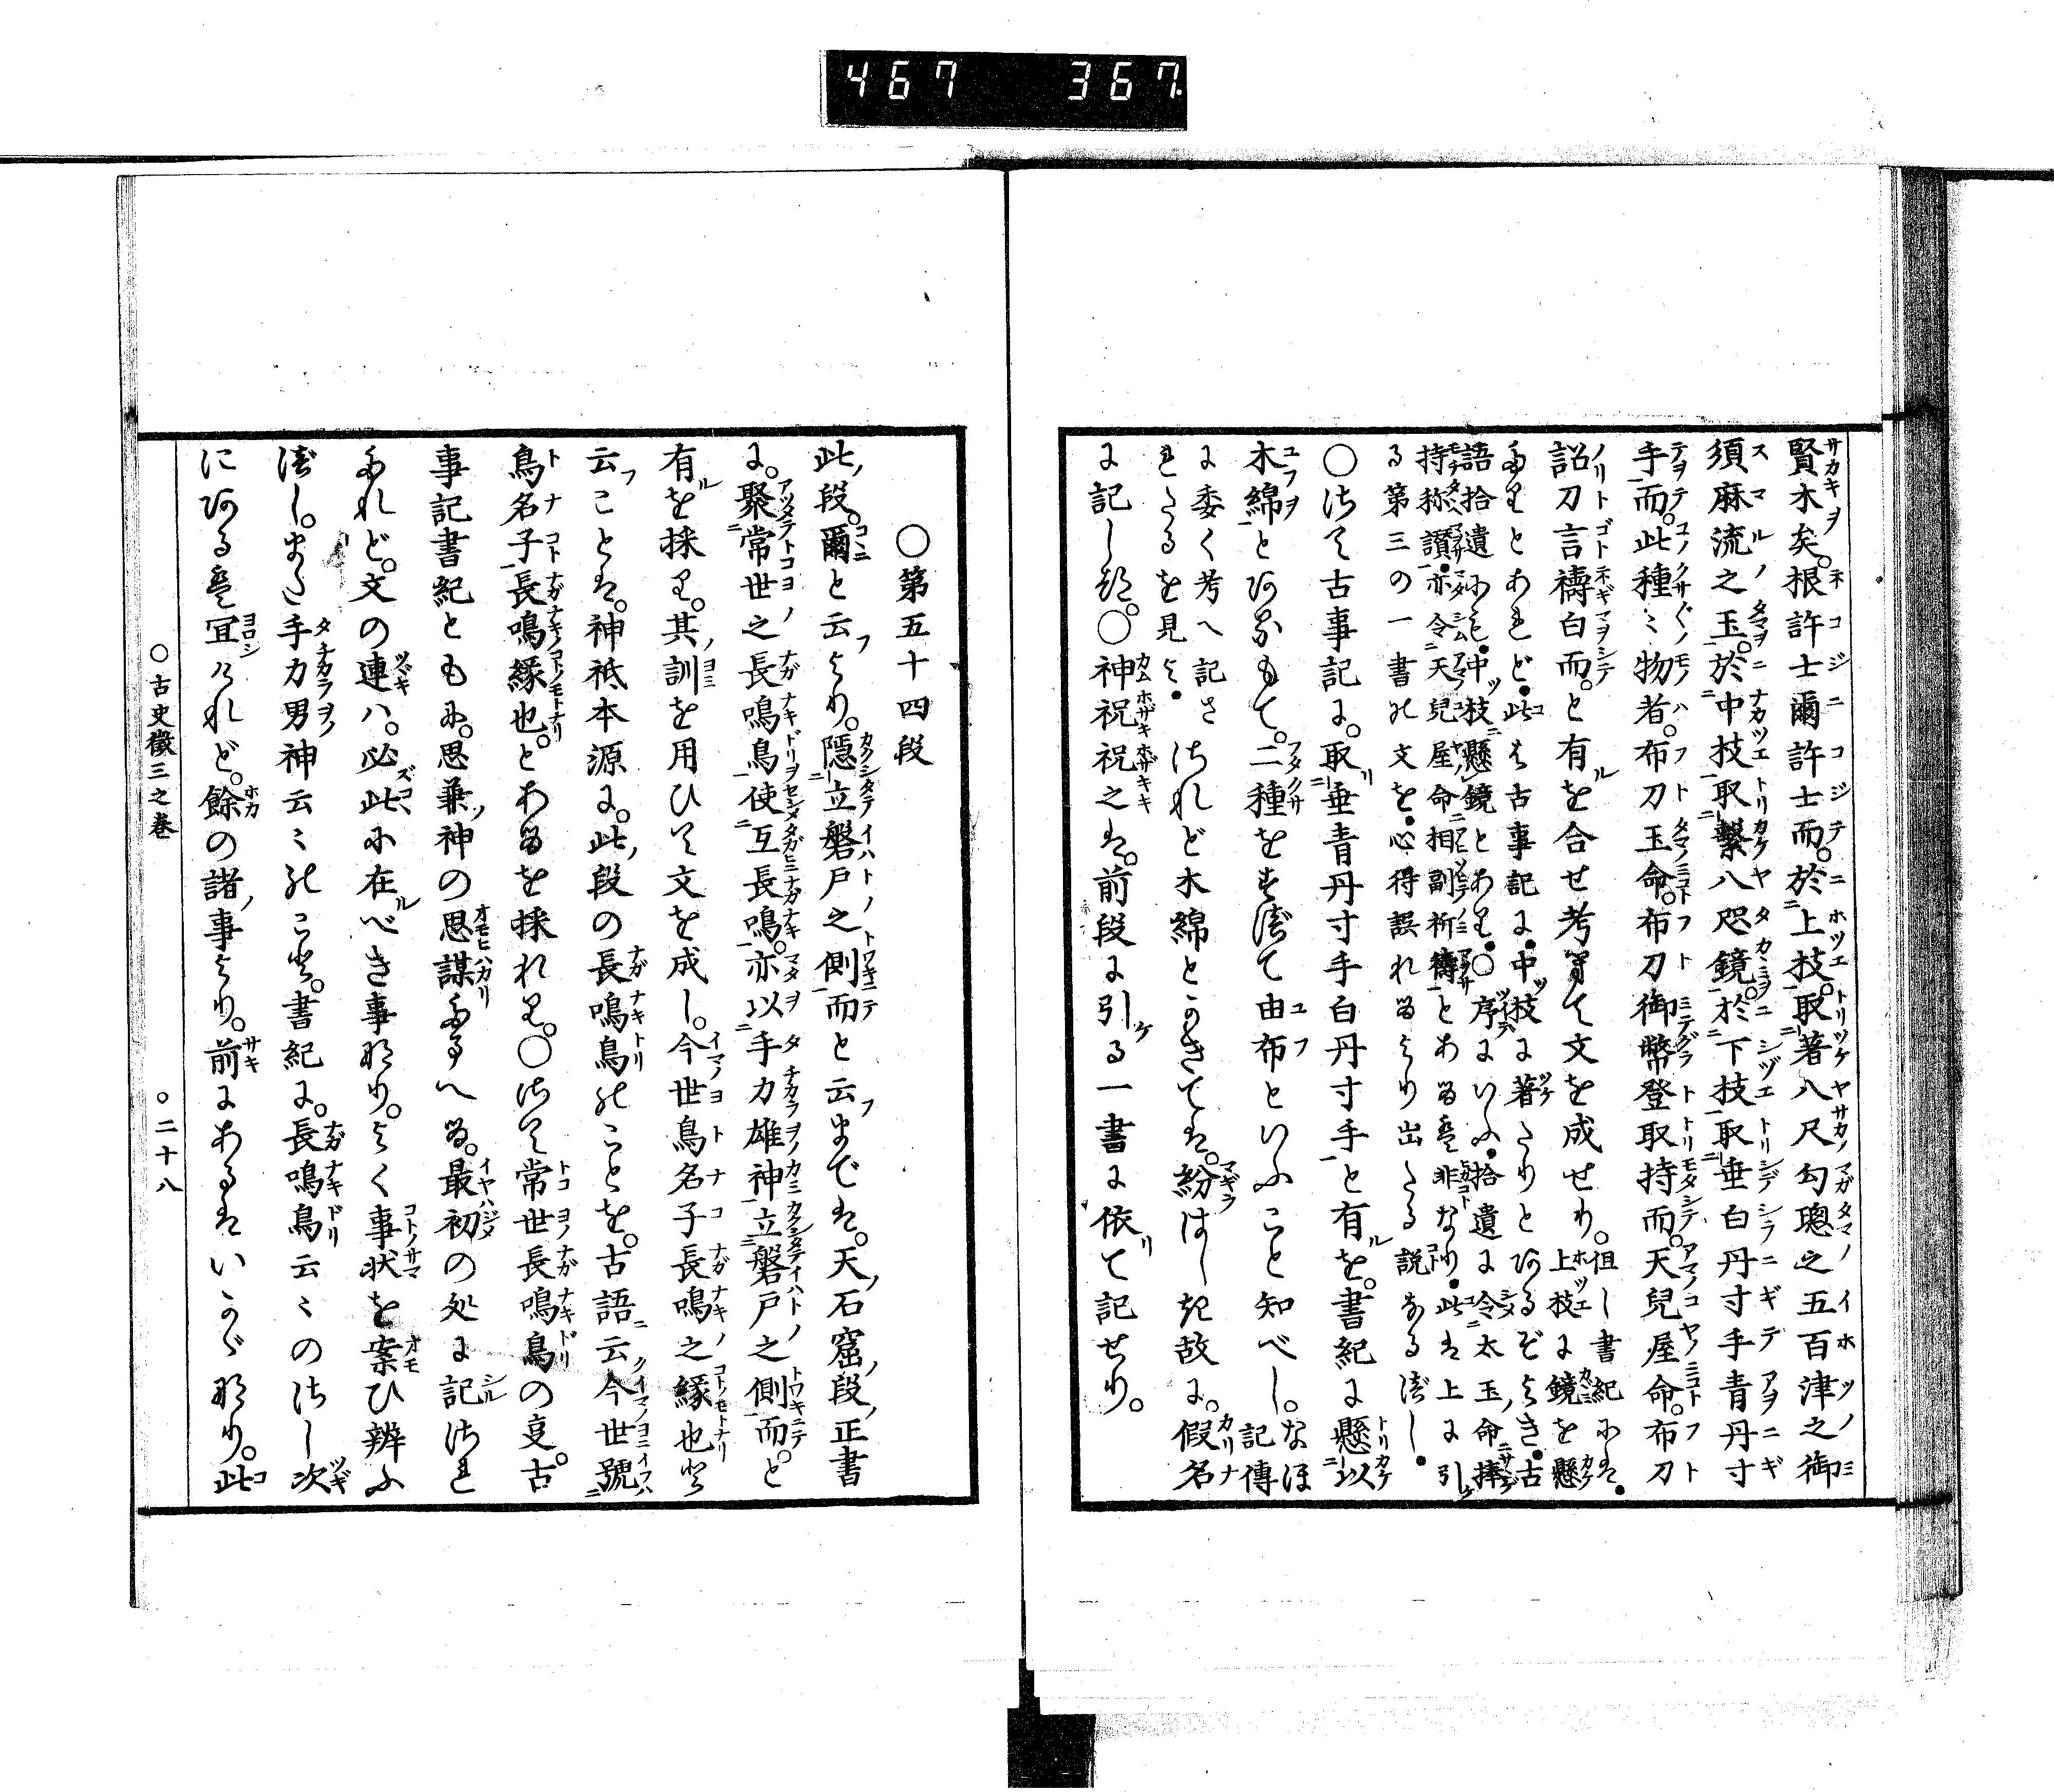 467 367
賢木矣。根許士爾許士而。於上枝。取著八尺勾璁之五百津之御
須麻流之玉。於中枝取繋八咫鏡。於下枝取垂白丹寸手青丹寸
手而。此種〻物者。布刀玉命。布刀御幣登取持而。天兒屋命。布刀
詔刀言禱白而。と有を合せ考へて文を成せり。但し書紀には。上枝に鏡を懸
たりとあれど。此は古事記に。中枝に著たりとあるぞよき。古
語拾遺にも。中枝懸鏡とあり。○序にいふ。拾遺に令太玉命捧
持称讃。亦令天兒屋命相副祈禱とあるは非なり。此は上に引
る第三の一書の文を。心得誤れるより出たる説なるべし。
○さて古事記に。取垂青丹寸手白丹寸手と有を。書紀に懸以
木綿とあるもて。二種をすべて由布といふこと知べし。なほ記傳
に委く考へ記さ
れたるを見よ。
されど木綿とかきては。紛はしき故に。假名
に記しぬ。○神祝祝之は。前段に引る一書に依て記せり。
○第五十四段
此段。爾と云より。隱立磐戸之側而と云までは。天石窟段正書
に。聚常世之長鳴鳥使互長鳴。亦以手力雄神立磐戸之側而。と
有を採り。其訓を用ひて文を成し。今世鳥名子長鳴之縁也と
云ことは。神祇本源に。此段の長鳴鳥のことを。古語云今世號
鳥名子長鳴縁也。とあるを採れり。○さて常世長鳴鳥の事。古
事記書紀ともに。思兼神の思謀たまへる。最初の処に記され
たれど。文の連ハ。必此に在べき事なり。よく事状を案ひ辨ふ
べし。また手力男神云〻のこと。書紀に。長鳴鳥云〻のさし次
にあるは宜けれど。餘の諸事より。前にあるはいかゞなり。此
○古史徴三之巻
○二十八